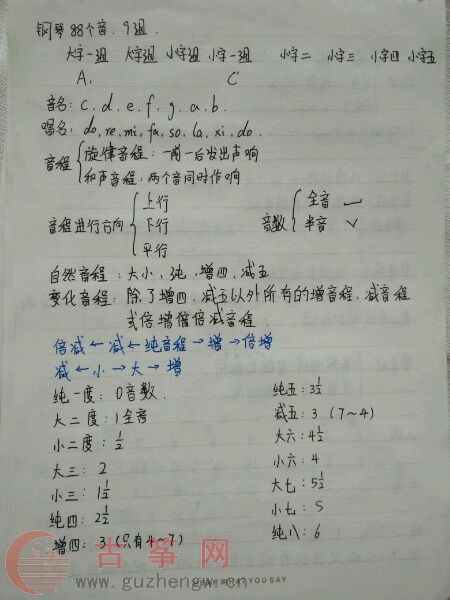 钢琴88个音.9组.
大字一组 大字组 小字组 小字一组 小字二 小字三 小字四 小字五
A, C'
音名: c. d. e. f. g. a. b.
唱名: do, re, mi, fa, so, la, xi, do.
音程 旋律音程:一前一后发出声响
和声音程:两个音同时作响
音程进行方向 上行
下行
平行
音数 全音 ✓
半音 ✓
自然音程:大小,纯,增四,减五
变化音程:除了增四,减五以外所有的增音程,减音程
或倍增倍减音程.
倍减←减←纯音程→增→倍增
减←小→大→增
纯一度:0音数.
大二度:1全音
小二度:1/2
大三:2
小三:1 1/2
纯四:2 1/2
增四:3(只有4~7)
纯五:3 1/2
减五:3 (7~4)
大六:4 1/2
小六:4
大七:5 1/2
小七:5
纯八:6
古筝网
www.guzhengw.cn
WHAT YOU SAY